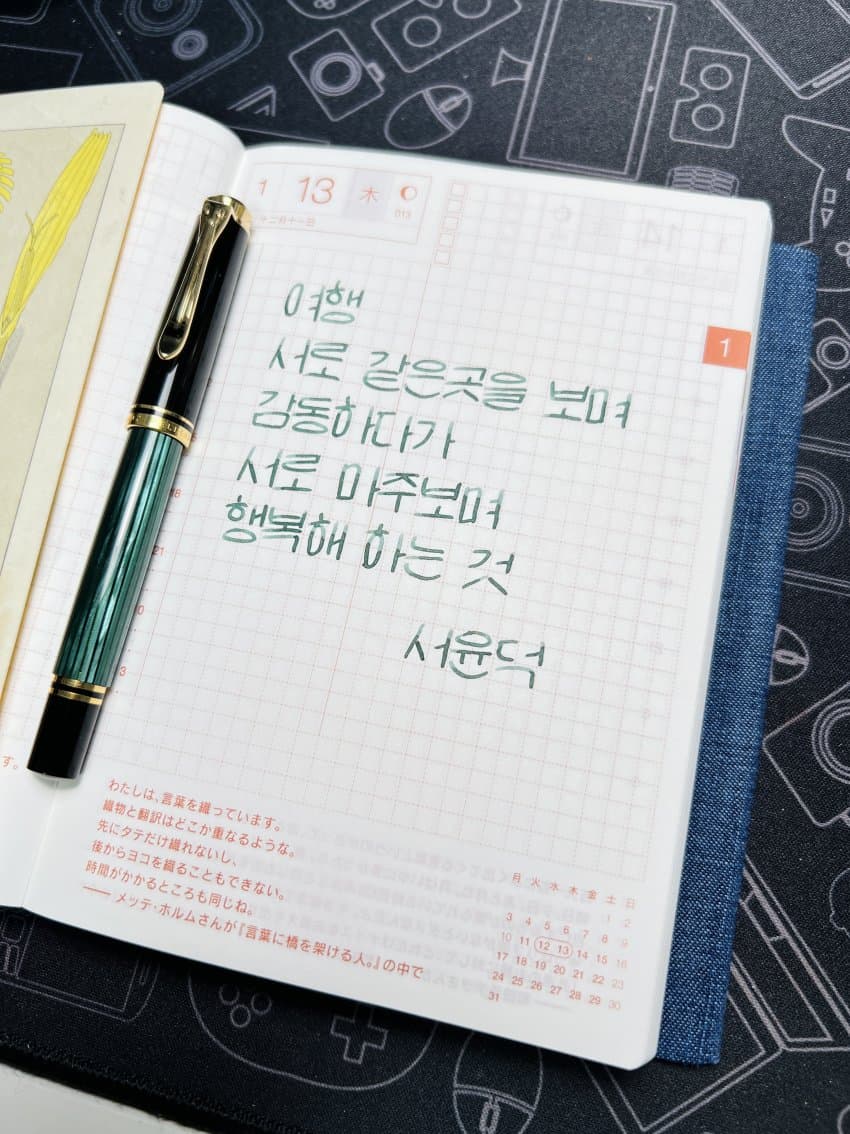 1 13 木
013
十二月十一日
1
여행
서로 같은곳을 보며
감동하다가
서로 마주보며
행복해 하는 것
서윤덕
18
21
0
3
す。
わたしは、言葉を織っています。
織物と翻訳はどこか重なるような。
先にタテだけ織れないし、
後からヨコを織ることもできない。
時間がかかるところも同じね。
──メッテ・ホルムさんが『言葉に橋を架ける人。』の中で
月 火 水 木 金 土 日
1 2
3 4 5 6 7 8 9
10 11 12 13 14 15 16
17 18 19 20 21 22 23
24 25 26 27 28 29 30
31